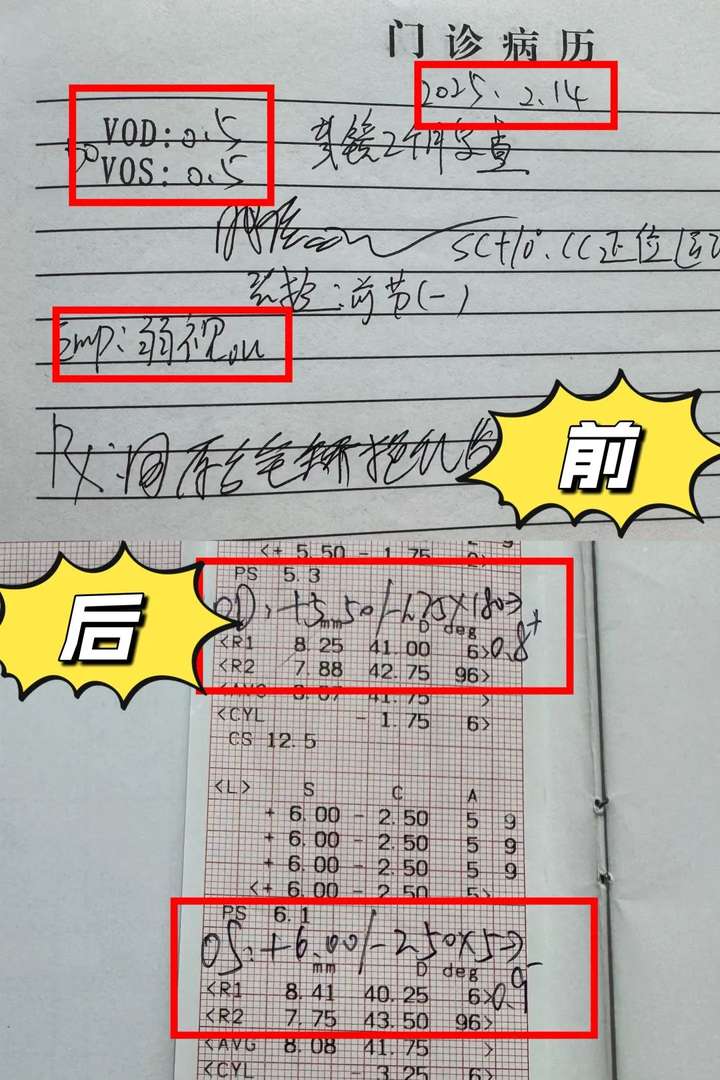 门诊病历
2025. 2.14
VOD: 0.5
戴镜2个月复查
VOS: 0.5
SC+10°. CC正位
裂检: 前节(-)
Imp: 弱视ou
Rx:
前
<+ 5.50 - 1.75
后
PS 5.3
OD: +5.50/-1.75×180→0.8+
mm D deg
<R1 8.25 41.00 6>
<R2 7.88 42.75 96>
<AVG 8.07 41.75 >
<CYL - 1.75 6>
CS 12.5
<L> S C A
+ 6.00 - 2.50 5 9
+ 6.00 - 2.50 5 9
+ 6.00 - 2.50 5 9
<+ 6.00 - 2.50 5>
PS 6.1
OS: +6.00/-2.50×5→0.9-
mm D deg
<R1 8.41 40.25 6>
<R2 7.75 43.50 96>
<AVG 8.08 41.75 >
<CYL - 3.25 6>